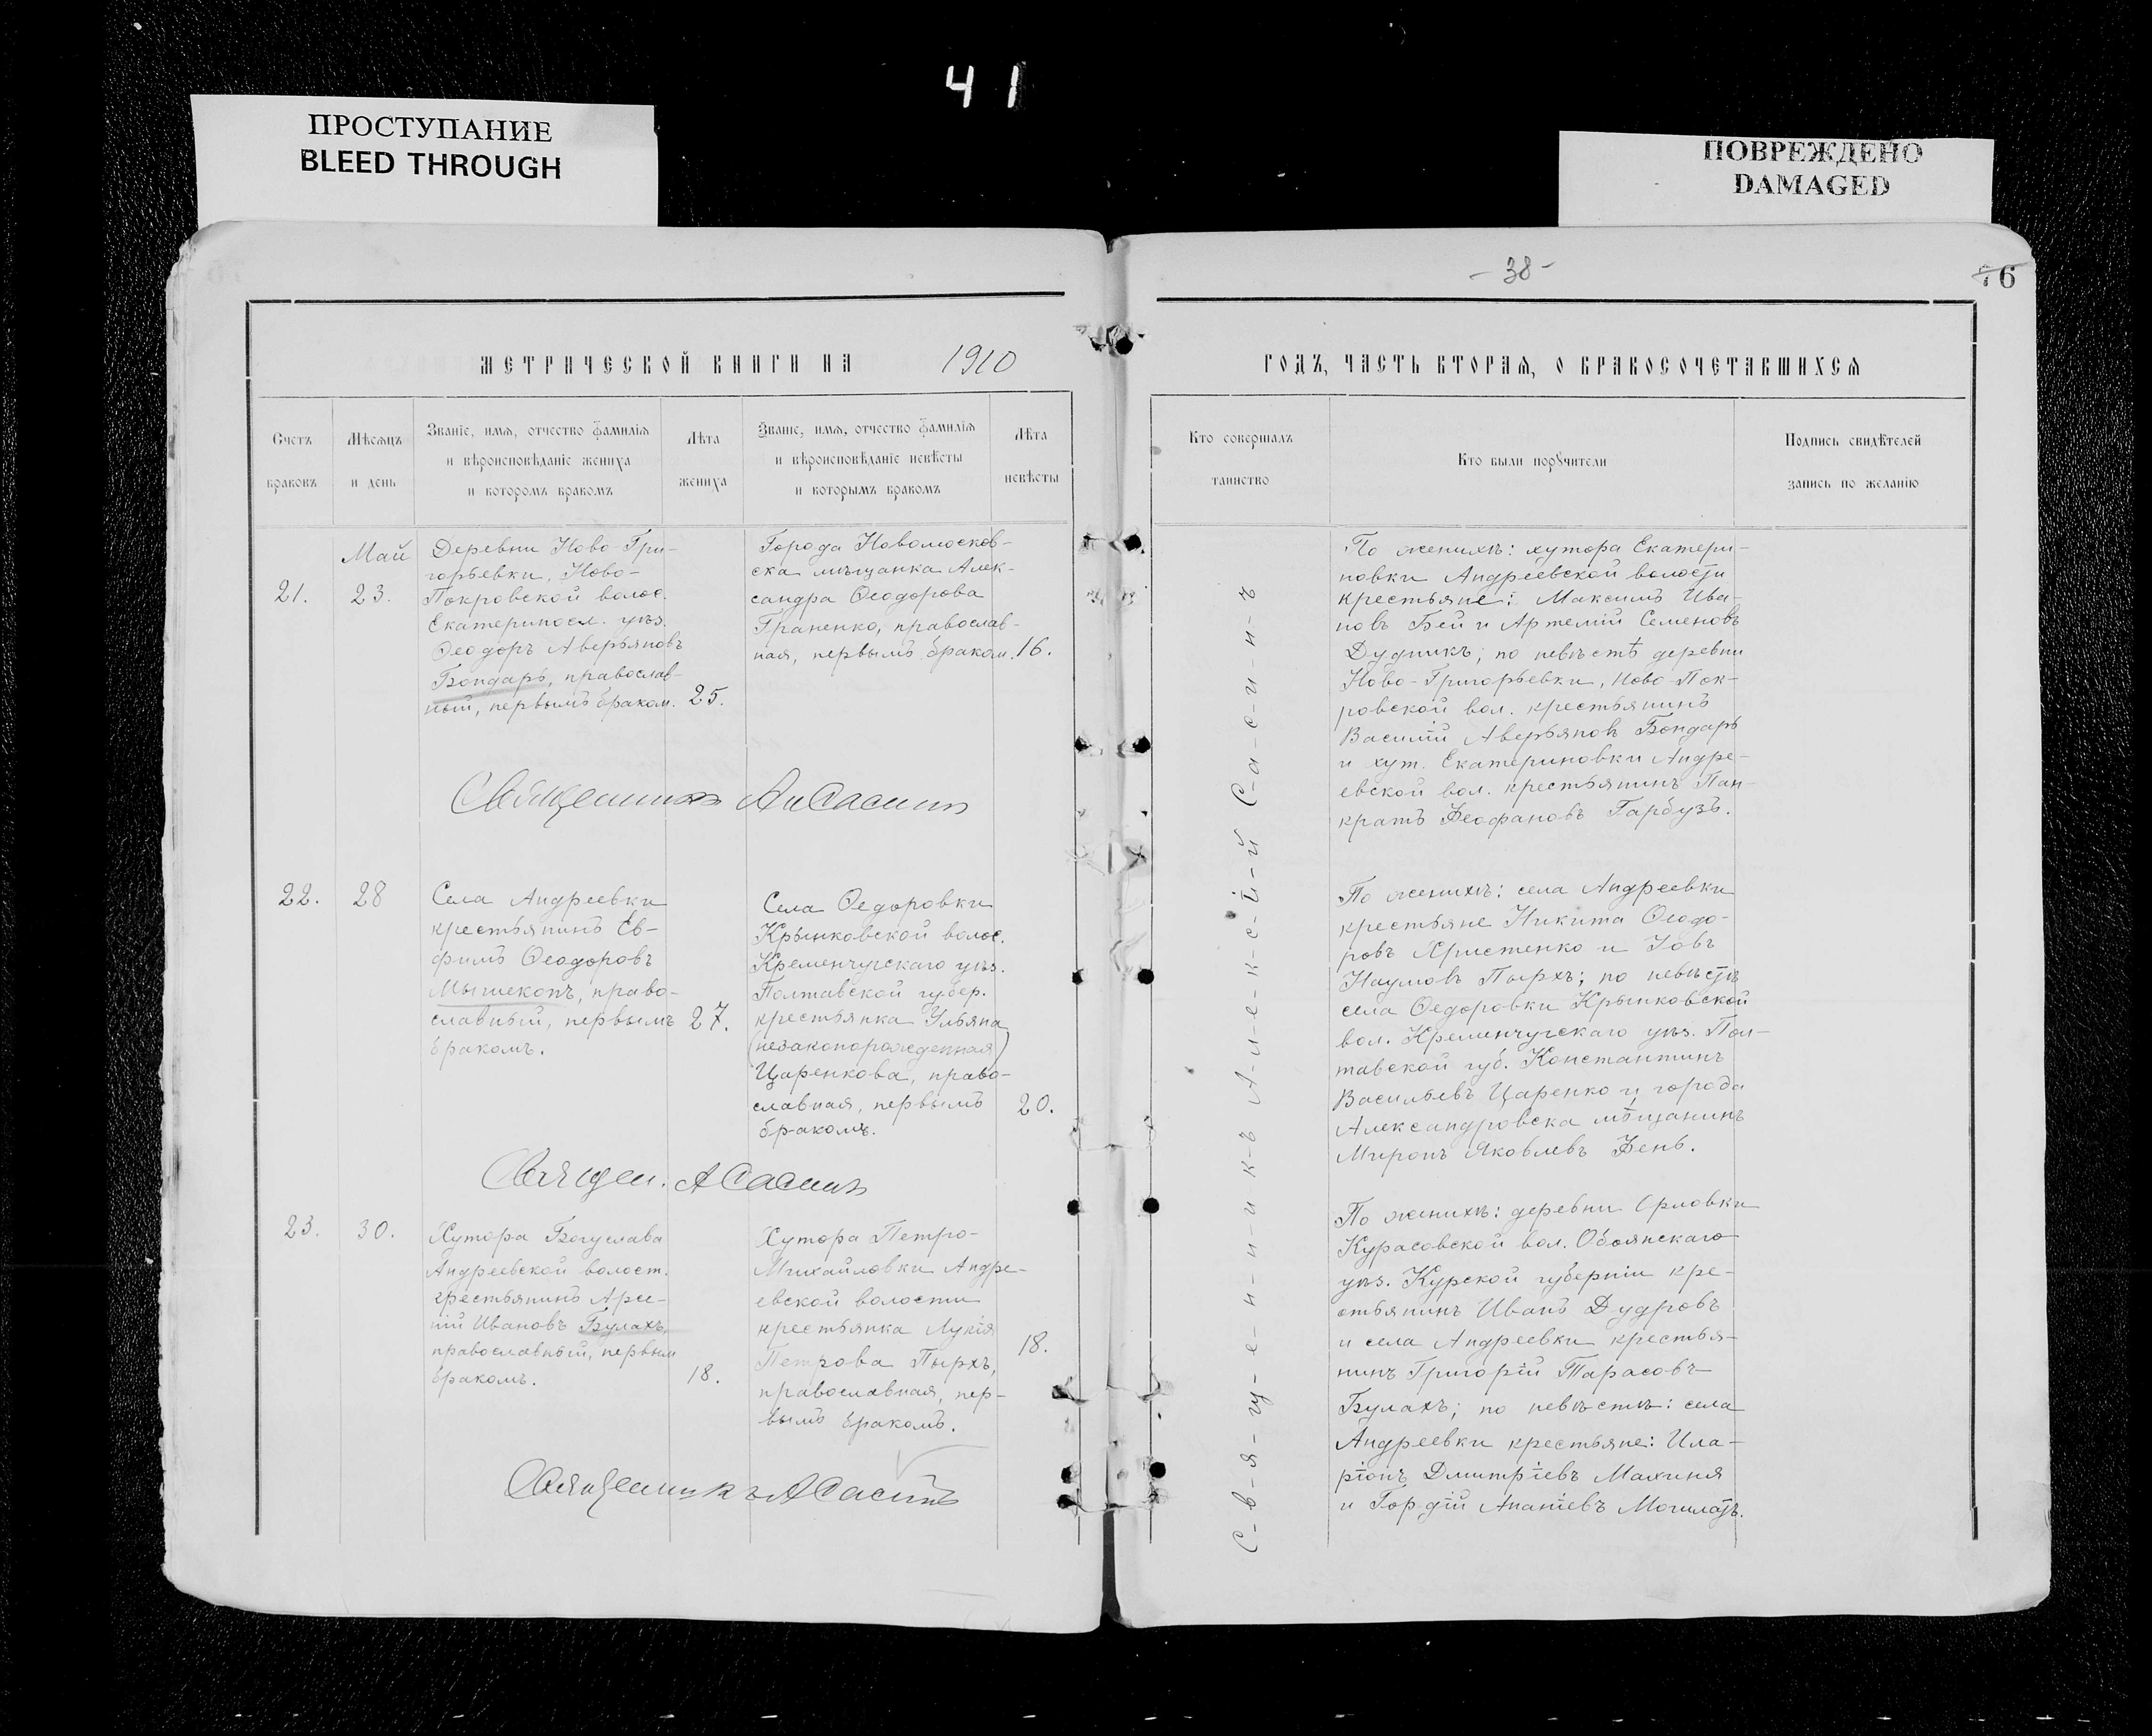 41
ПРОСТУПАНИЕ
BLEED THROUGH
ПОВРЕЖДЕНО
DAMAGED
МЕТРИЧЕСКОЙ КНИГИ НА 1910
Счетъ
браковъ
Мѣсяцъ
и день
Званіе, имя, отчество фамилія
и вѣроисповѣданіе жениха
и которомъ бракомъ
Лѣта
жениха
Званіе, имя, отчество фамилія
и вѣроисповѣданіе невѣсты
и которымъ бракомъ
Лѣта
невѣсты
21.
Май
23.
Деревни Ново-Гри-
горьевки, Ново-
Покровской волос.
Екатеринosл. уѣз.
Ѳеодоръ Аверьяновъ
Бондарь, православ-
ный, первымъ браком.
25.
Города Новомосков-
ска мѣщанка Алек-
сандра Ѳеодорова
Граненко, православ-
ная, первымъ браком.
16.
Священникъ Ал Сасинъ
22.
28
Села Андреевки
крестьянинъ Ев-
фимъ Ѳеодоровъ
Мышеконъ, право-
славный, первымъ
бракомъ.
27.
Села Ѳедоровки
Крынковской волос.
Кременчугскаго уѣз.
Полтавской губер.
крестьянка Ульяна
(незаконорожденная)
Царенкова, право-
славная, первымъ
бракомъ.
20.
Священ. А Сасинъ
23.
30.
Хутора Богуслава
Андреевской волост.
крестьянинъ Арсе-
ній Ивановъ Булахъ,
православный, первым
бракомъ.
18.
Хутора Петро-
Михайловки Андре-
евской волости
крестьянка Лукія
Петрова Пырхъ,
православная, пер-
вымъ бракомъ.
18.
Священникъ А Сасинъ
- 38 -
6
ГОДЪ, ЧАСТЬ ВТОРАЯ, О БРАКОСОЧЕТАВШИХСЯ
Кто совершалъ
таинство
Кто были поручители
Подпись свидѣтелей
запись по желанію
С-в-я-щ-е-н-н-и-к-ъ А-л-е-к-с-ѣ-й С-а-с-и-н-ъ
По женихѣ: хутора Екатери-
новки Андреевской волости
крестьяне: Максимъ Ива-
новъ Бей и Артемій Семеновъ
Дудникъ; по невѣстѣ деревни
Ново-Григорьевки, Ново-Пок-
ровской вол. крестьянинъ
Василій Аверьяновъ Бондарь
и хут. Екатериновки Андре-
евской вол. крестьянинъ Пан-
кратъ Ѳеофановъ Гарбузъ.
По женихѣ: села Андреевки
крестьяне Никита Ѳеодо-
ровъ Христенко и Іовъ
Наумовъ Пырхъ; по невѣстѣ
села Ѳедоровки Крынковской
вол. Кременчугскаго уѣз. Пол-
тавской губ. Константинъ
Васильевъ Царенко и города
Александровска мѣщанинъ
Миронъ Яковлевъ День.
По женихѣ: деревни Орловки
Курасовской вол. Обоянскаго
уѣз. Курской губерніи кре-
стьянинъ Иванъ Дудровъ
и села Андреевки крестья-
нинъ Григорій Тарасовъ
Булахъ; по невѣстѣ: села
Андреевки крестьяне: Ила-
ріонъ Дмитріевъ Махиня
и Гордій Ананіевъ Могилатъ.